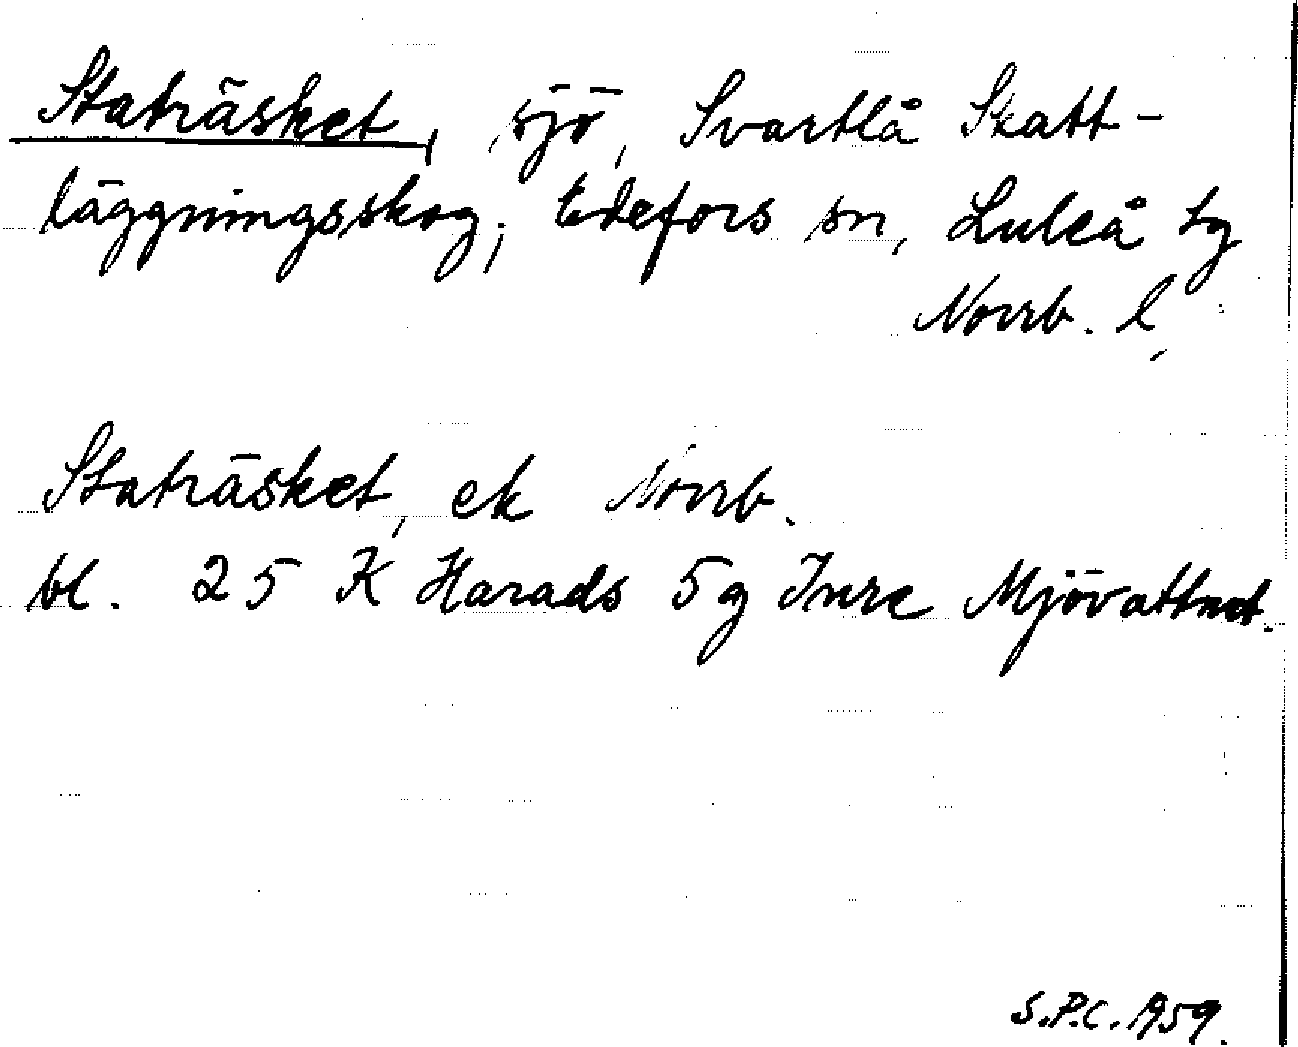 Staträsket, sjö, Svartlå Skatt-
läggningsskog, Edefors sn, Luleå tg
Norrb. l,
Staträsket, ek Norrb.
bl. 25 K Harads 5g Inre Mjövattnet.
S.P.C. 1959.